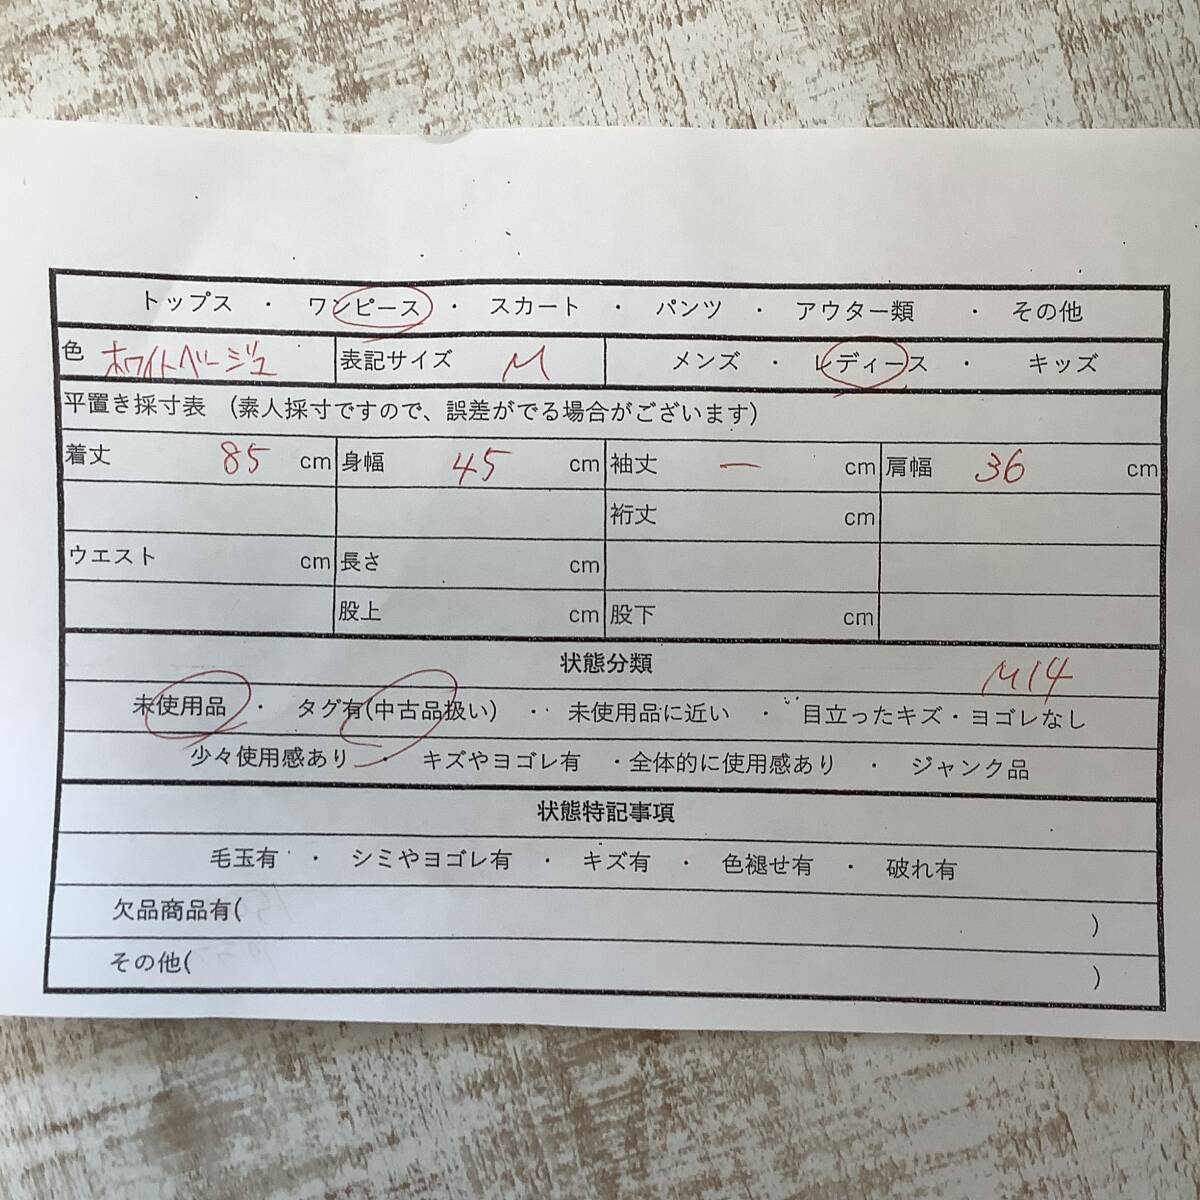 トップス ・ ワンピース ・ スカート ・ パンツ ・ アウター類 ・ その他
色 ホワイトベージュ 表記サイズ M メンズ ・ レディース ・ キッズ
平置き採寸表 (素人採寸ですので、誤差がでる場合がございます)
着丈 85 cm 身幅 45 cm 袖丈 ー cm 肩幅 36 cm
裄丈 cm
ウエスト cm 長さ cm
股上 cm 股下 cm
状態分類 M14
未使用品 ・ タグ有(中古品扱い) ・・ 未使用品に近い ・ 目立ったキズ・ヨゴレなし
少々使用感あり ・ キズやヨゴレ有 ・全体的に使用感あり ・ ジャンク品
状態特記事項
毛玉有 ・ シミやヨゴレ有 ・ キズ有 ・ 色褪せ有 ・ 破れ有
欠品商品有( )
その他( )